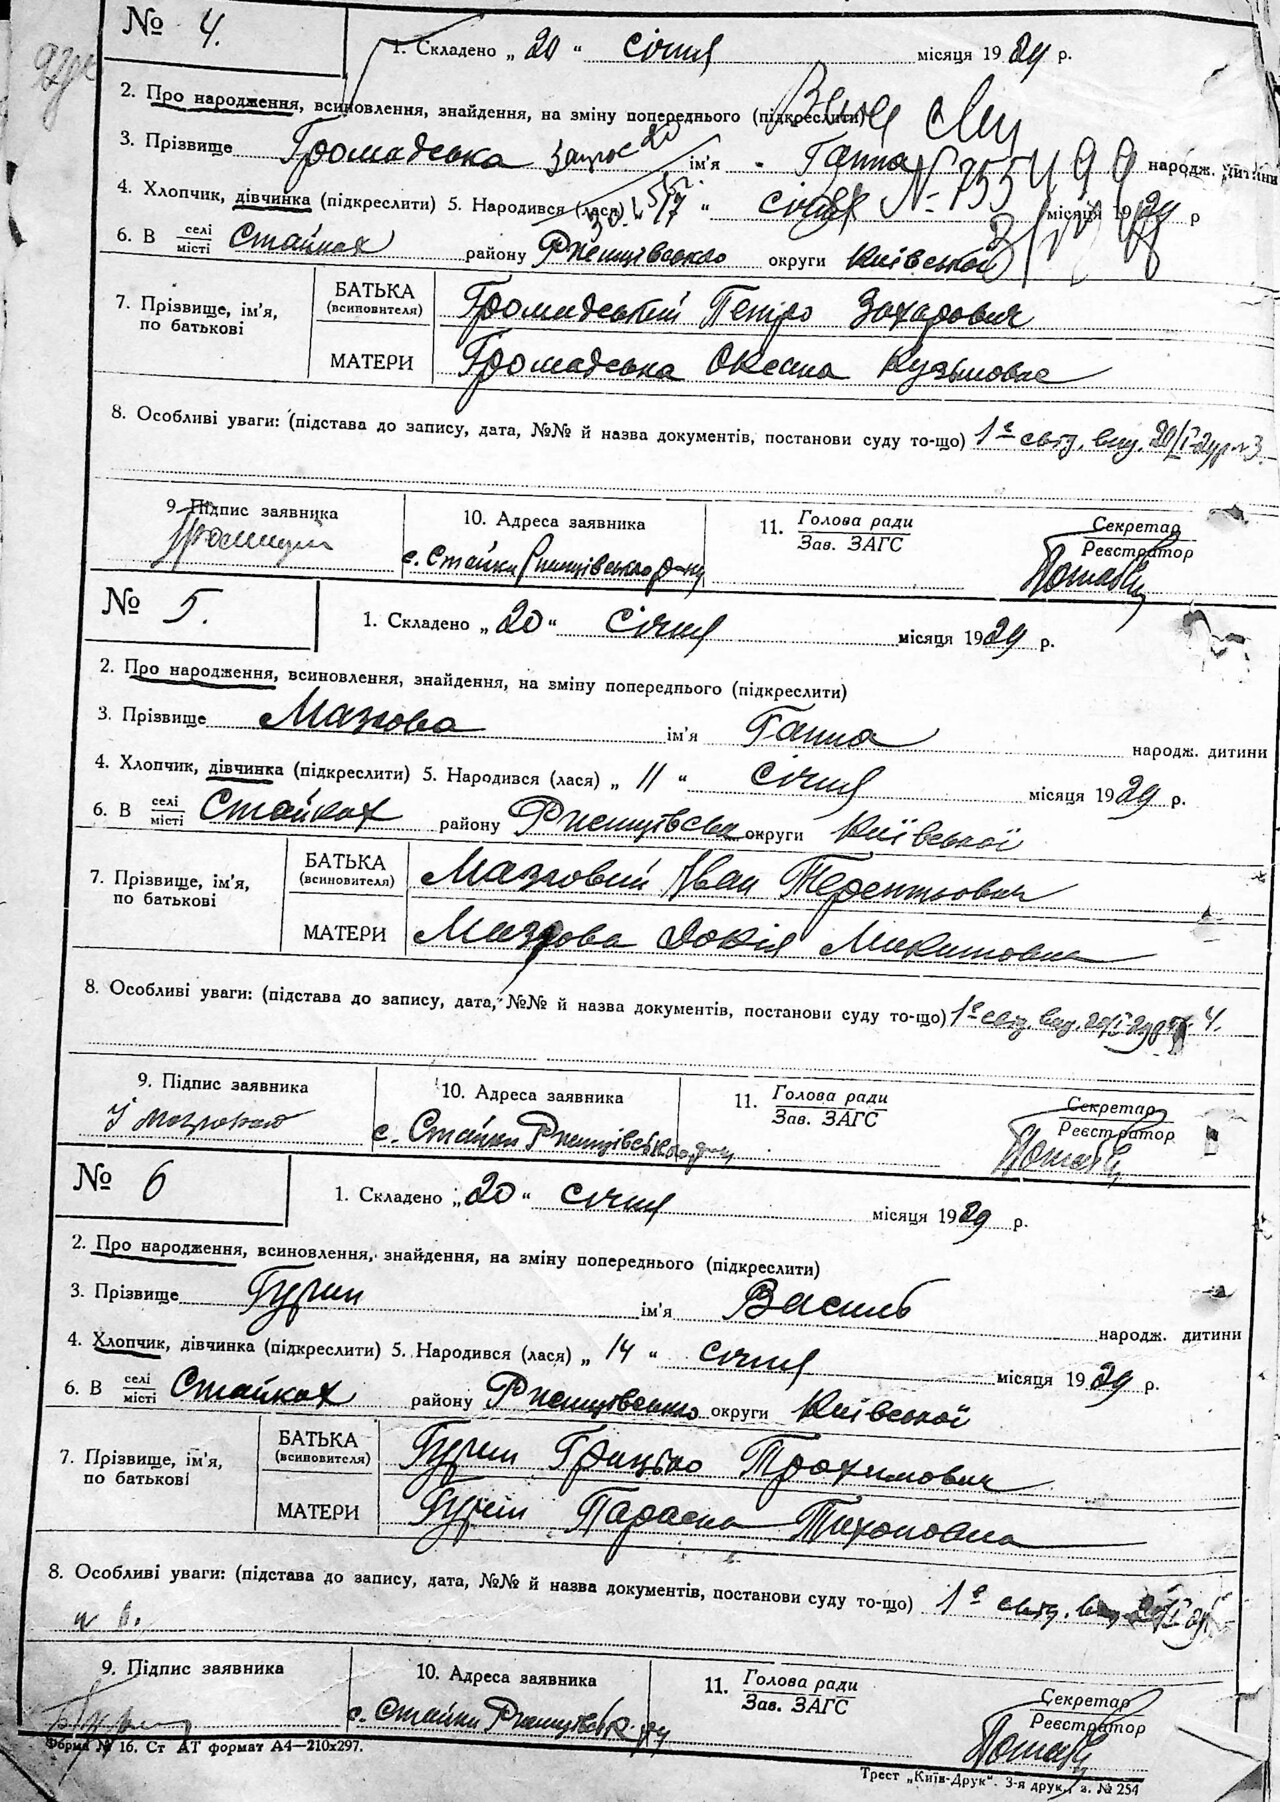 № 4.
1. Складено „ 20 “ січня місяця 1929 р.
2. Про народження, всиновлення, знайдення, на зміну попереднього (підкреслити)
3. Прізвище Громадська ім'я Ганна народж. дитини
№ 755499
4. Хлопчик, дівчинка (підкреслити) 5. Народився (лася) „ 17 “ січня місяця 1929 р
6. В селі/місті Стайках району Ржищівського округи Київської
7. Прізвище, ім'я, по батькові
БАТЬКА (всиновителя) Громадський Петро Захарович
МАТЕРИ Громадська Оксана Кузьмовна
8. Особливі уваги: (підстава до запису, дата, №№ й назва документів, постанови суду то-що) 1е свід. вид. 20/I-29р № 3.
9. Підпис заявника
10. Адреса заявника
11. Голова ради
Зав. ЗАГС
Секретар
Реєстратор
с. Стайки Ржищівського р-ну
№ 5.
1. Складено „ 20 “ січня місяця 1929 р.
2. Про народження, всиновлення, знайдення, на зміну попереднього (підкреслити)
3. Прізвище Мазкова ім'я Ганна народж. дитини
4. Хлопчик, дівчинка (підкреслити) 5. Народився (лася) „ 11 “ січня місяця 1929 р.
6. В селі/місті Стайках району Ржищівськ округи Київської
7. Прізвище, ім'я, по батькові
БАТЬКА (всиновителя) Мазковий Іван Терентьович
МАТЕРИ Мазкова Докія Микитовна
8. Особливі уваги: (підстава до запису, дата, №№ й назва документів, постанови суду то-що) 1е свід. вид. 20/I-29р № 4.
9. Підпис заявника
10. Адреса заявника
11. Голова ради
Зав. ЗАГС
Секретар
Реєстратор
с. Стайки Ржищівського р-ну
№ 6
1. Складено „ 20 “ січня місяця 1929 р.
2. Про народження, всиновлення, знайдення, на зміну попереднього (підкреслити)
3. Прізвище Гурин ім'я Василь народж. дитини
4. Хлопчик, дівчинка (підкреслити) 5. Народився (лася) „ 14 “ січня місяця 1929 р.
6. В селі/місті Стайках району Ржищівського округи Київської
7. Прізвище, ім'я, по батькові
БАТЬКА (всиновителя) Гурин Грицько Трохимович
МАТЕРИ Гурин Параска Тихоновна
8. Особливі уваги: (підстава до запису, дата, №№ й назва документів, постанови суду то-що) 1е свід. вид. 20/I 29
9. Підпис заявника
10. Адреса заявника
11. Голова ради
Зав. ЗАГС
Секретар
Реєстратор
с. Стайки Ржищівськ. р-ну
Форма № 16. Ст АТ формат А4—210х297.
Трест „Київ-Друк“. 3-я друк., з. № 254